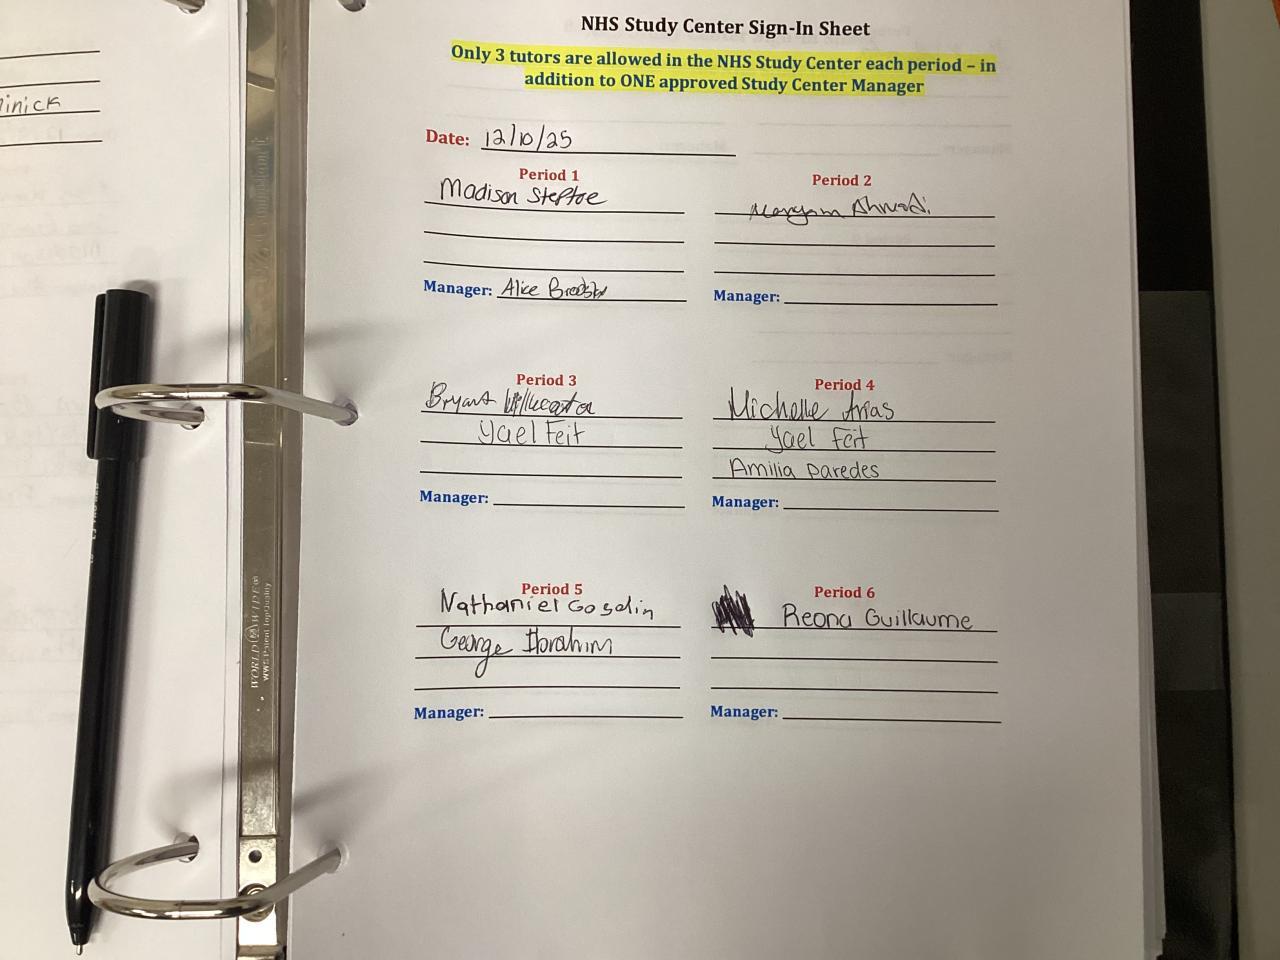 inick
NHS Study Center Sign-In Sheet
Only 3 tutors are allowed in the NHS Study Center each period – in
addition to ONE approved Study Center Manager
Date: 12/10/25
Period 1
Madison Steptoe
Manager: Alice
Period 2
Maryam Ahmadi
Manager:
Period 3
Bryant
Yael Feit
Manager:
Period 4
Michelle Arias
Yael Feit
Amilia Paredes
Manager:
Period 5
Nathaniel Gosalin
George Ibrahim
Manager:
Period 6
Reona Guillaume
Manager:
WORLD WIDE